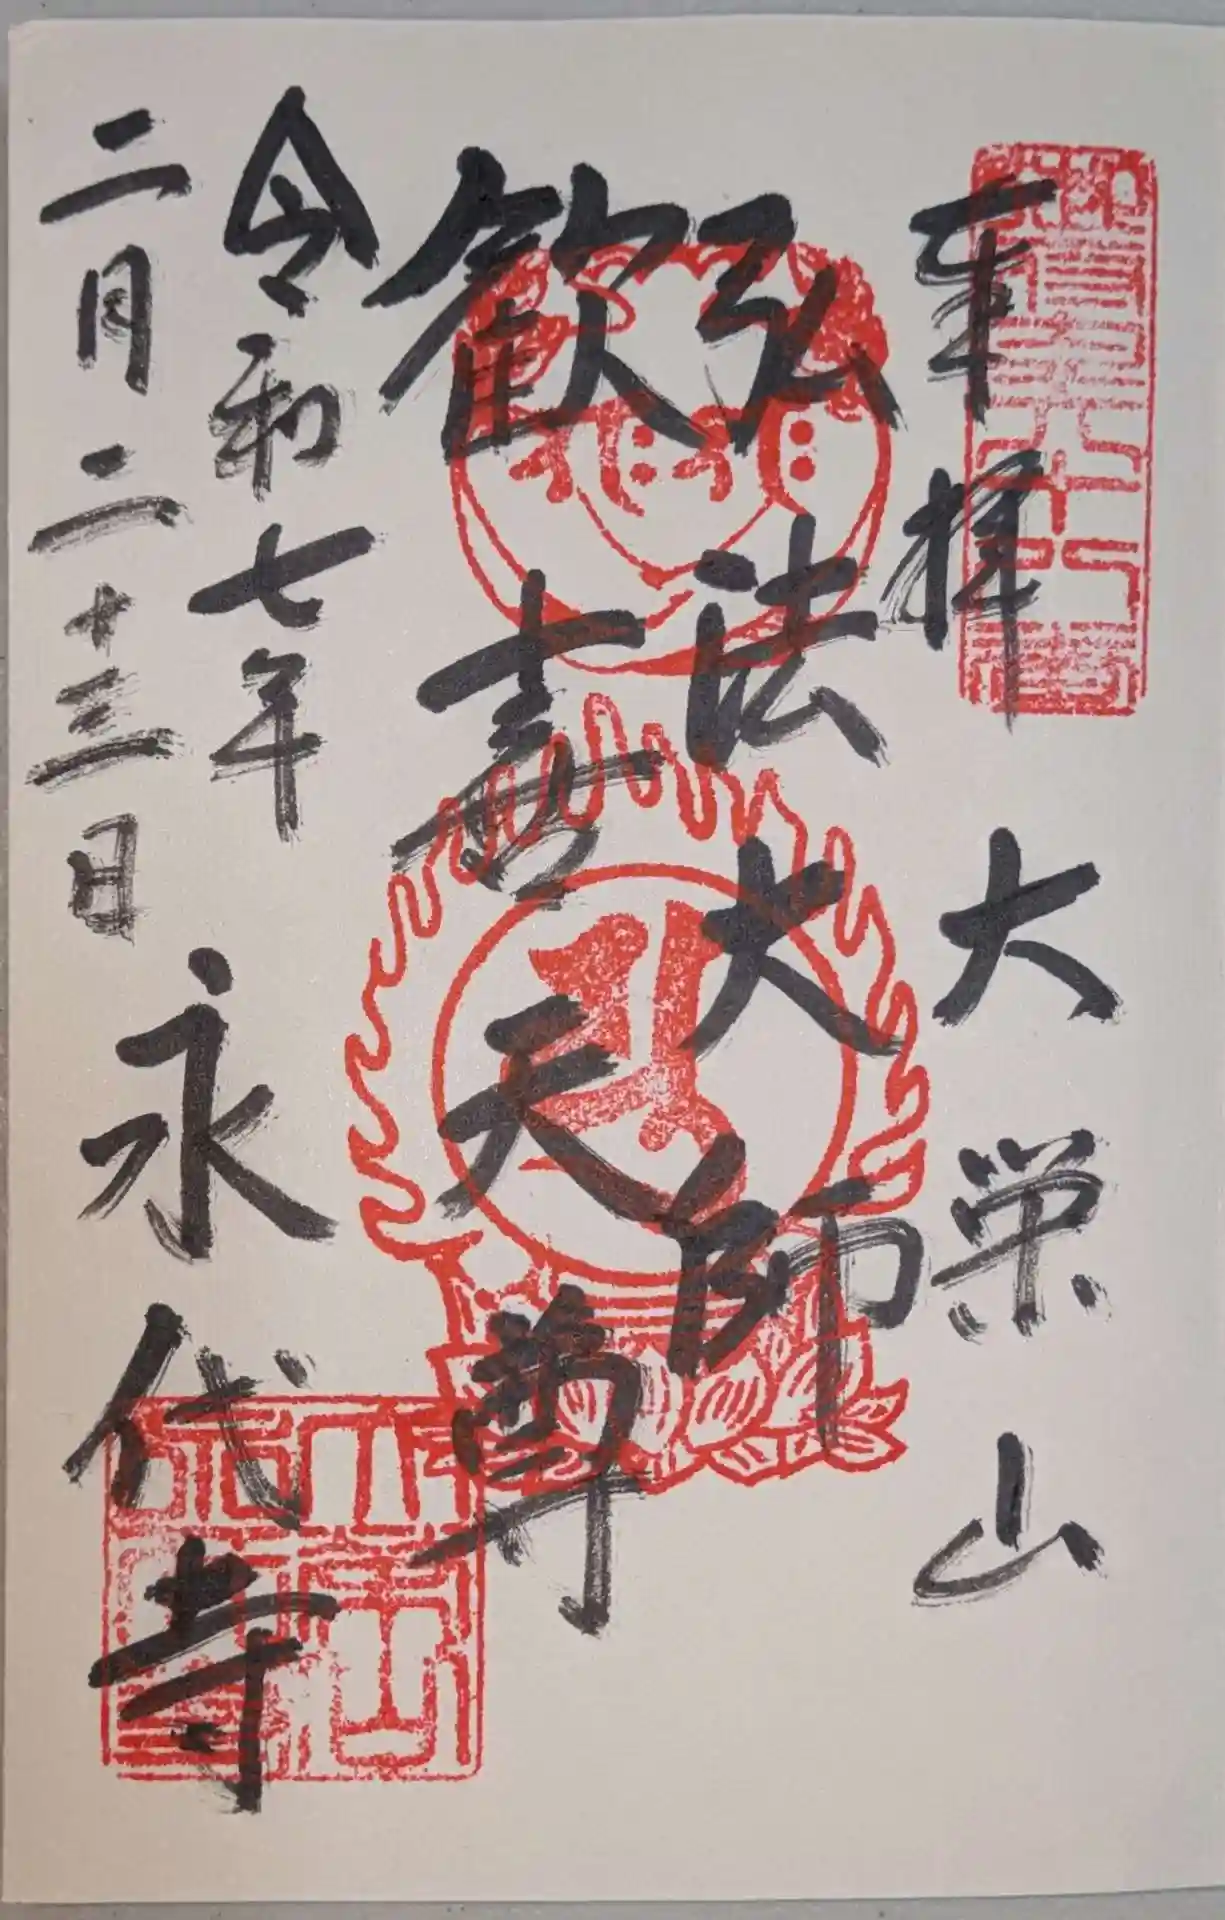 奉拝 大栄山
弘法大師
歓喜天尊
令和七年
二月二十三日
永代寺